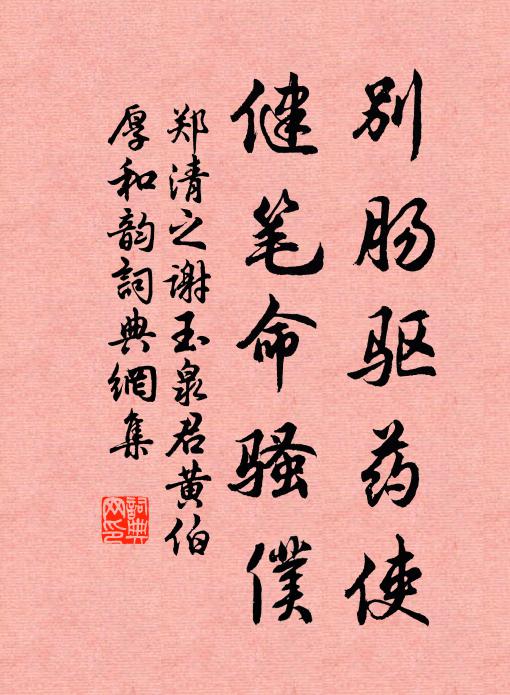 别肠驱药使
健笔命骚僕
郑清之谢玉泉君黄伯
厚和韵詞典網集
詞典
网印